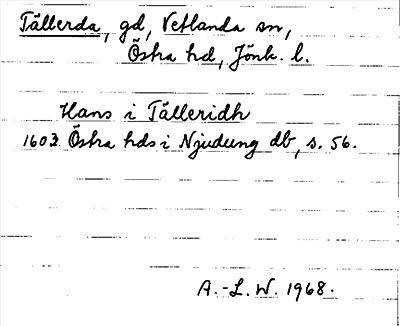 Tållerda, gd, Vetlanda sn,
Östra hd, Jönk. l.
Hans i Tålleridh
1603 Östra hds i Njudung db, s. 56.
A.-L. W. 1968.